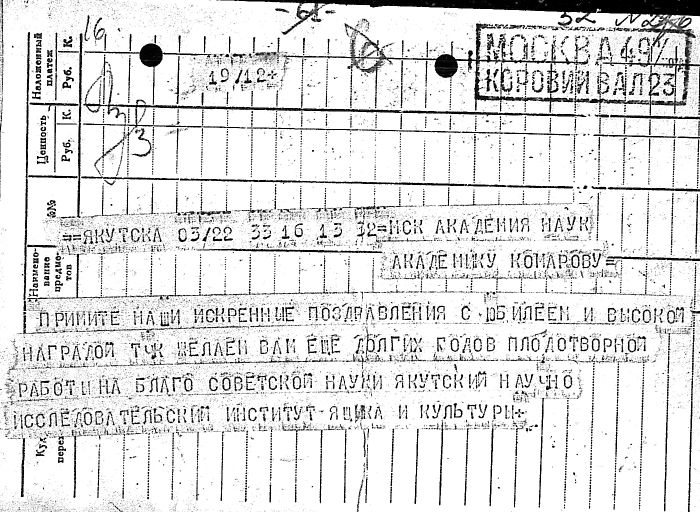 16
32
19/12+
МОСКВА 49
КОРОВИЙ ВАЛ 23
Наложенный платеж
Руб. К.
Ценность
Руб. К.
№№
==ЯКУТСКА 03/22 33 16 13 32=МСК АКАДЕМИЯ НАУК
АКАДЕМИКУ КОМАРОВУ=
Наимено-
вание
предме-
тов
ПРИМИТЕ НАШИ ИСКРЕННИЕ ПОЗДРАВЛЕНИЯ С ЮБИЛЕЕМ И ВЫСОКОЙ
НАГРАДОЙ ТЧК ЖЕЛАЕМ ВАМ ЕЩЕ ДОЛГИХ ГОДОВ ПЛОДОТВОРНОЙ
РАБОТЫ НА БЛАГО СОВЕТСКОЙ НАУКИ ЯКУТСКИЙ НАУЧНО
ИССЛЕДОВАТЕЛЬСКИЙ ИНСТИТУТ-ЯЗЫКА И КУЛЬТУРЫ+